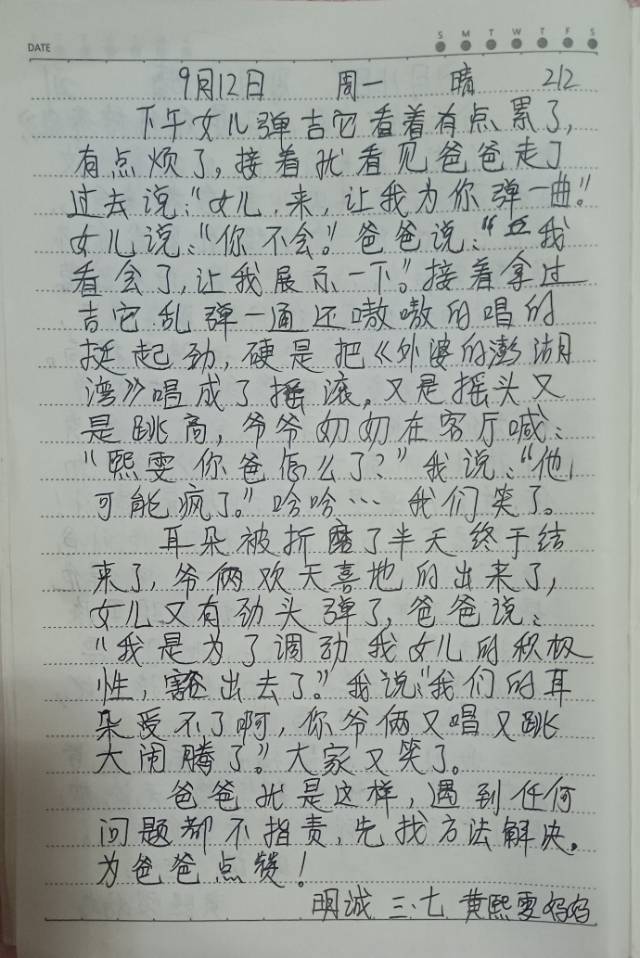 DATE
S M T W T F S
9月12日 周一 晴 212
下午女儿弹吉它看着有点累了,
有点烦了,接着就看见爸爸走了
过去说:“女儿,来,让我为你弹一曲。”
女儿说:“你不会。”爸爸说:“我
看会了,让我展示一下。”接着拿过
吉它乱弹一通还嗷嗷的唱的
挺起劲,硬是把《外婆的澎湖
湾》唱成了摇滚,又是摇头又
是跳高,爷爷奶奶在客厅喊:
“熙雯你爸怎么了?”我说:“他
可能疯了。”哈哈… 我们笑了。
耳朵被折磨了半天终于结
来了,爷俩欢天喜地的出来了,
女儿又有劲头弹了,爸爸说:
“我是为了调动我女儿的积极
性,豁出去了。”我说:“我们的耳
朵受不了啊,你爷俩又唱又跳
大闹腾了。”大家又笑了。
爸爸就是这样,遇到任何
问题都不指责,先找方法解决。
为爸爸点赞!
明诚 三·七 黄熙雯妈妈